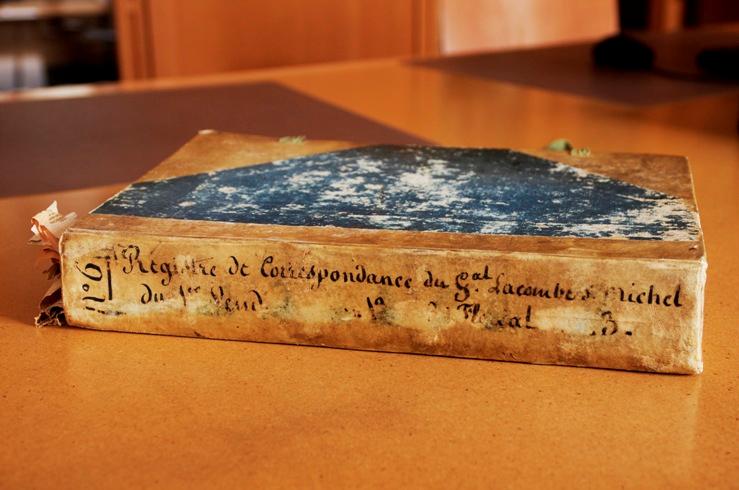 n.º 6
Registre de Correspondance du G.al Lacombe S. Michel
du 1er Vend 12 Floréal 3.